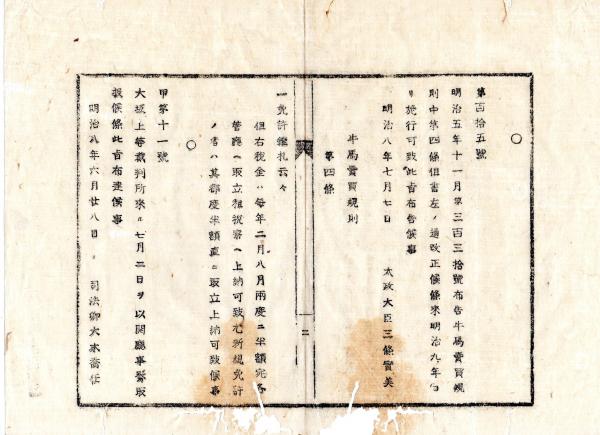 第百拾五號
明治五年十一月第三百三拾號布告牛馬賣買規
則中第四條但書左ノ通改正候條來明治九年ヨ
リ施行可致此旨布告候事
明治八年七月七日　太政大臣三條實美
牛馬賣買規則
第四條
一免許鑑札云々
但右税金ハ每年二月八月兩度ニ半額完各
管廳ヘ取立租税寮ヘ上納可致尤新規免許
ノ者ハ其都度半額直ニ取立上納可致候事
二
甲第十一號
大坂上等裁判所來ル七月二日ヲ以開廳事務取
扱候條此旨布達候事
明治八年六月廿八日　司法卿大木喬任